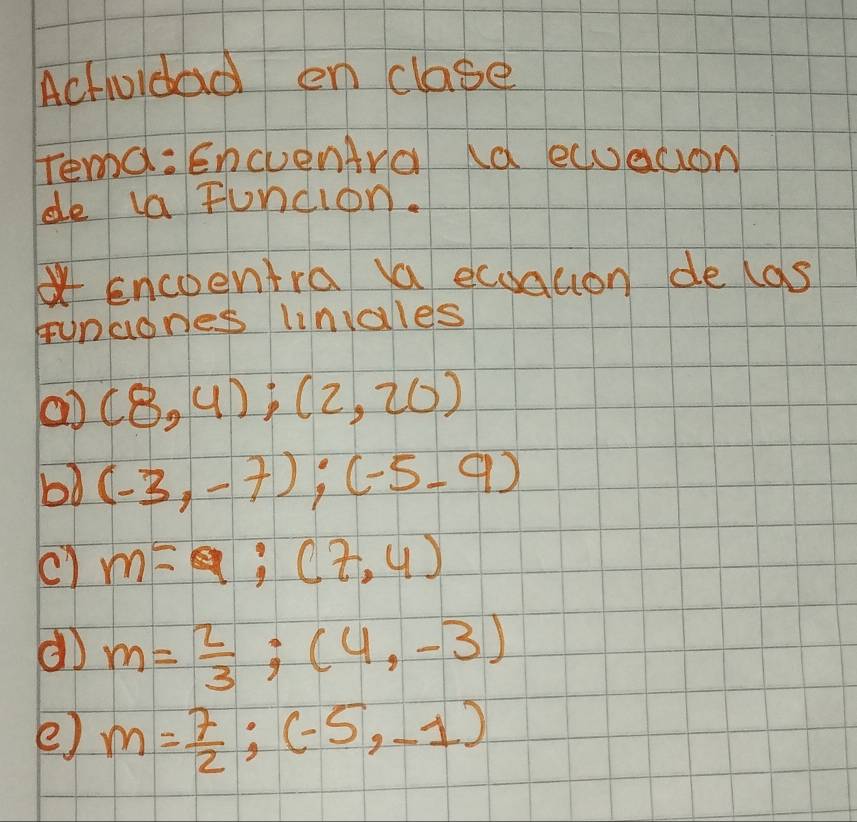 Actividad en clase
Tema: Encuentra la ecuacion
de la Funcion.
Encoentra la ecuacion de las
funciones liniales
a) (8,4); (2,20)
b) (-3,-7); (-5-9)
c) m=9; (7,4)
d) m=2/3; (4,-3)
e) m=7/2; (-5,-1)